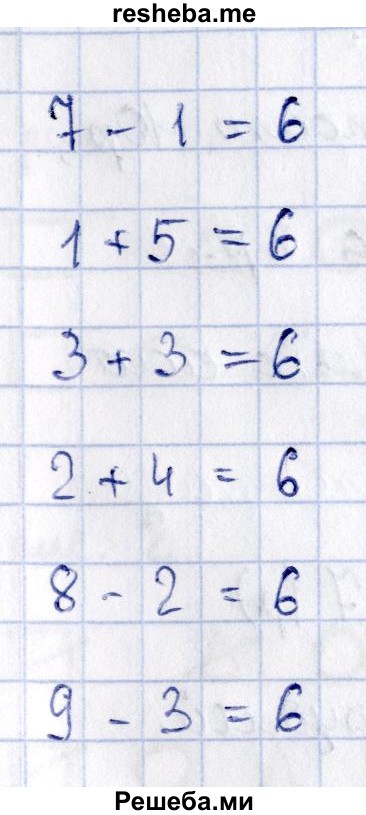 resheba.me
7 - 1 = 6
1 + 5 = 6
3 + 3 = 6
2 + 4 = 6
8 - 2 = 6
9 - 3 = 6
Решеба.ми